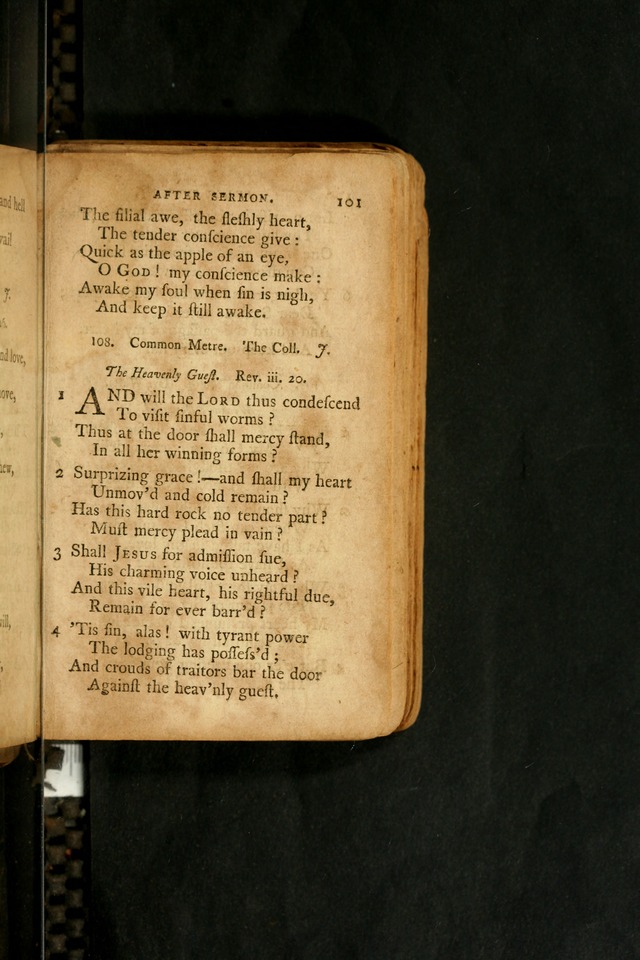 and hell
vail
7.
nd love,
ove,
new,
AFTER SERMON. 101
The filial awe, the fleſhly heart,
The tender conſcience give :
Quick as the apple of an eye,
O GOD ! my conſcience make :
Awake my ſoul when ſin is nigh,
And keep it ſtill awake.
108. Common Metre. The Coll. 7.
The Heavenly Gueſt. Rev. iii. 20.
1 AND will the LORD thus condeſcend
To viſit ſinful worms ?
Thus at the door ſhall mercy ſtand,
In all her winning forms ?
2 Surprizing grace !—and ſhall my heart
Unmov'd and cold remain ?
Has this hard rock no tender part ?
Muſt mercy plead in vain ?
3 Shall JESUS for admiſſion ſue,
His charming voice unheard ?
And this vile heart, his rightful due,
Remain for ever barr'd ?
4 'Tis ſin, alas ! with tyrant power
The lodging has poſſeſs'd ;
And crouds of traitors bar the door
Againſt the heav'nly gueſt.